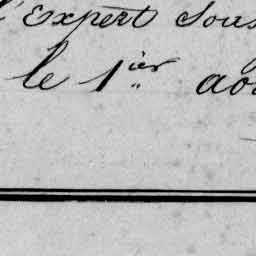 l'Expert Sous
le 1ier aoû